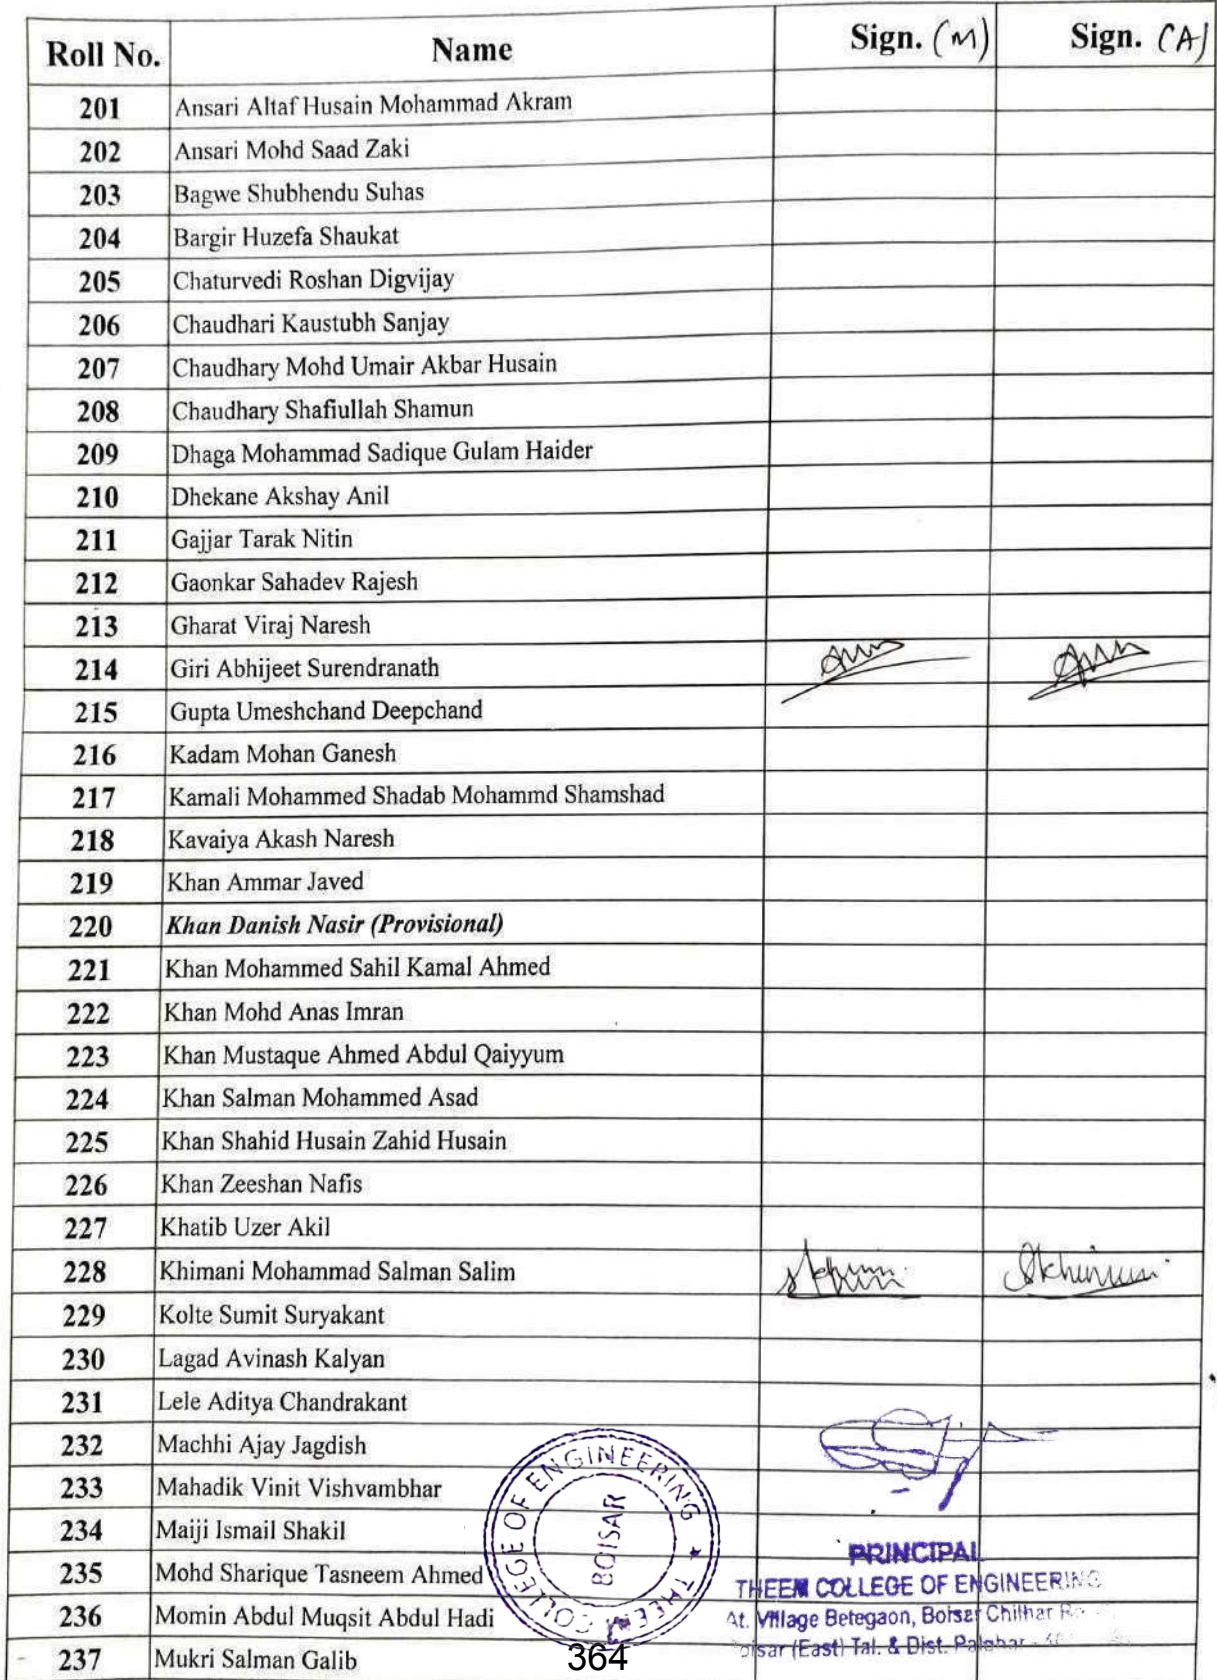 Roll No. Name Sign. (M) Sign. (A)
201 Ansari Altaf Husain Mohammad Akram
202 Ansari Mohd Saad Zaki
203 Bagwe Shubhendu Suhas
204 Bargir Huzefa Shaukat
205 Chaturvedi Roshan Digvijay
206 Chaudhari Kaustubh Sanjay
207 Chaudhary Mohd Umair Akbar Husain
208 Chaudhary Shafiullah Shamun
209 Dhaga Mohammad Sadique Gulam Haider
210 Dhekane Akshay Anil
211 Gajjar Tarak Nitin
212 Gaonkar Sahadev Rajesh
213 Gharat Viraj Naresh
214 Giri Abhijeet Surendranath
215 Gupta Umeshchand Deepchand
216 Kadam Mohan Ganesh
217 Kamali Mohammed Shadab Mohammd Shamshad
218 Kavaiya Akash Naresh
219 Khan Ammar Javed
220 Khan Danish Nasir (Provisional)
221 Khan Mohammed Sahil Kamal Ahmed
222 Khan Mohd Anas Imran
223 Khan Mustaque Ahmed Abdul Qaiyyum
224 Khan Salman Mohammed Asad
225 Khan Shahid Husain Zahid Husain
226 Khan Zeeshan Nafis
227 Khatib Uzer Akil
228 Khimani Mohammad Salman Salim
229 Kolte Sumit Suryakant
230 Lagad Avinash Kalyan
231 Lele Aditya Chandrakant
232 Machhi Ajay Jagdish
233 Mahadik Vinit Vishvambhar
234 Maiji Ismail Shakil
235 Mohd Sharique Tasneem Ahmed
236 Momin Abdul Muqsit Abdul Hadi
237 Mukri Salman Galib
THEEM COLLEGE OF ENGINEERING ★
BOISAR
PRINCIPAL
THEEM COLLEGE OF ENGINEERING
At. Village Betegaon, Boisar Chilhar
Boisar (East) Tal. & Dist. Palghar
364